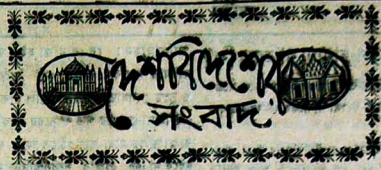 দেশবিদেশের
সংবাদ